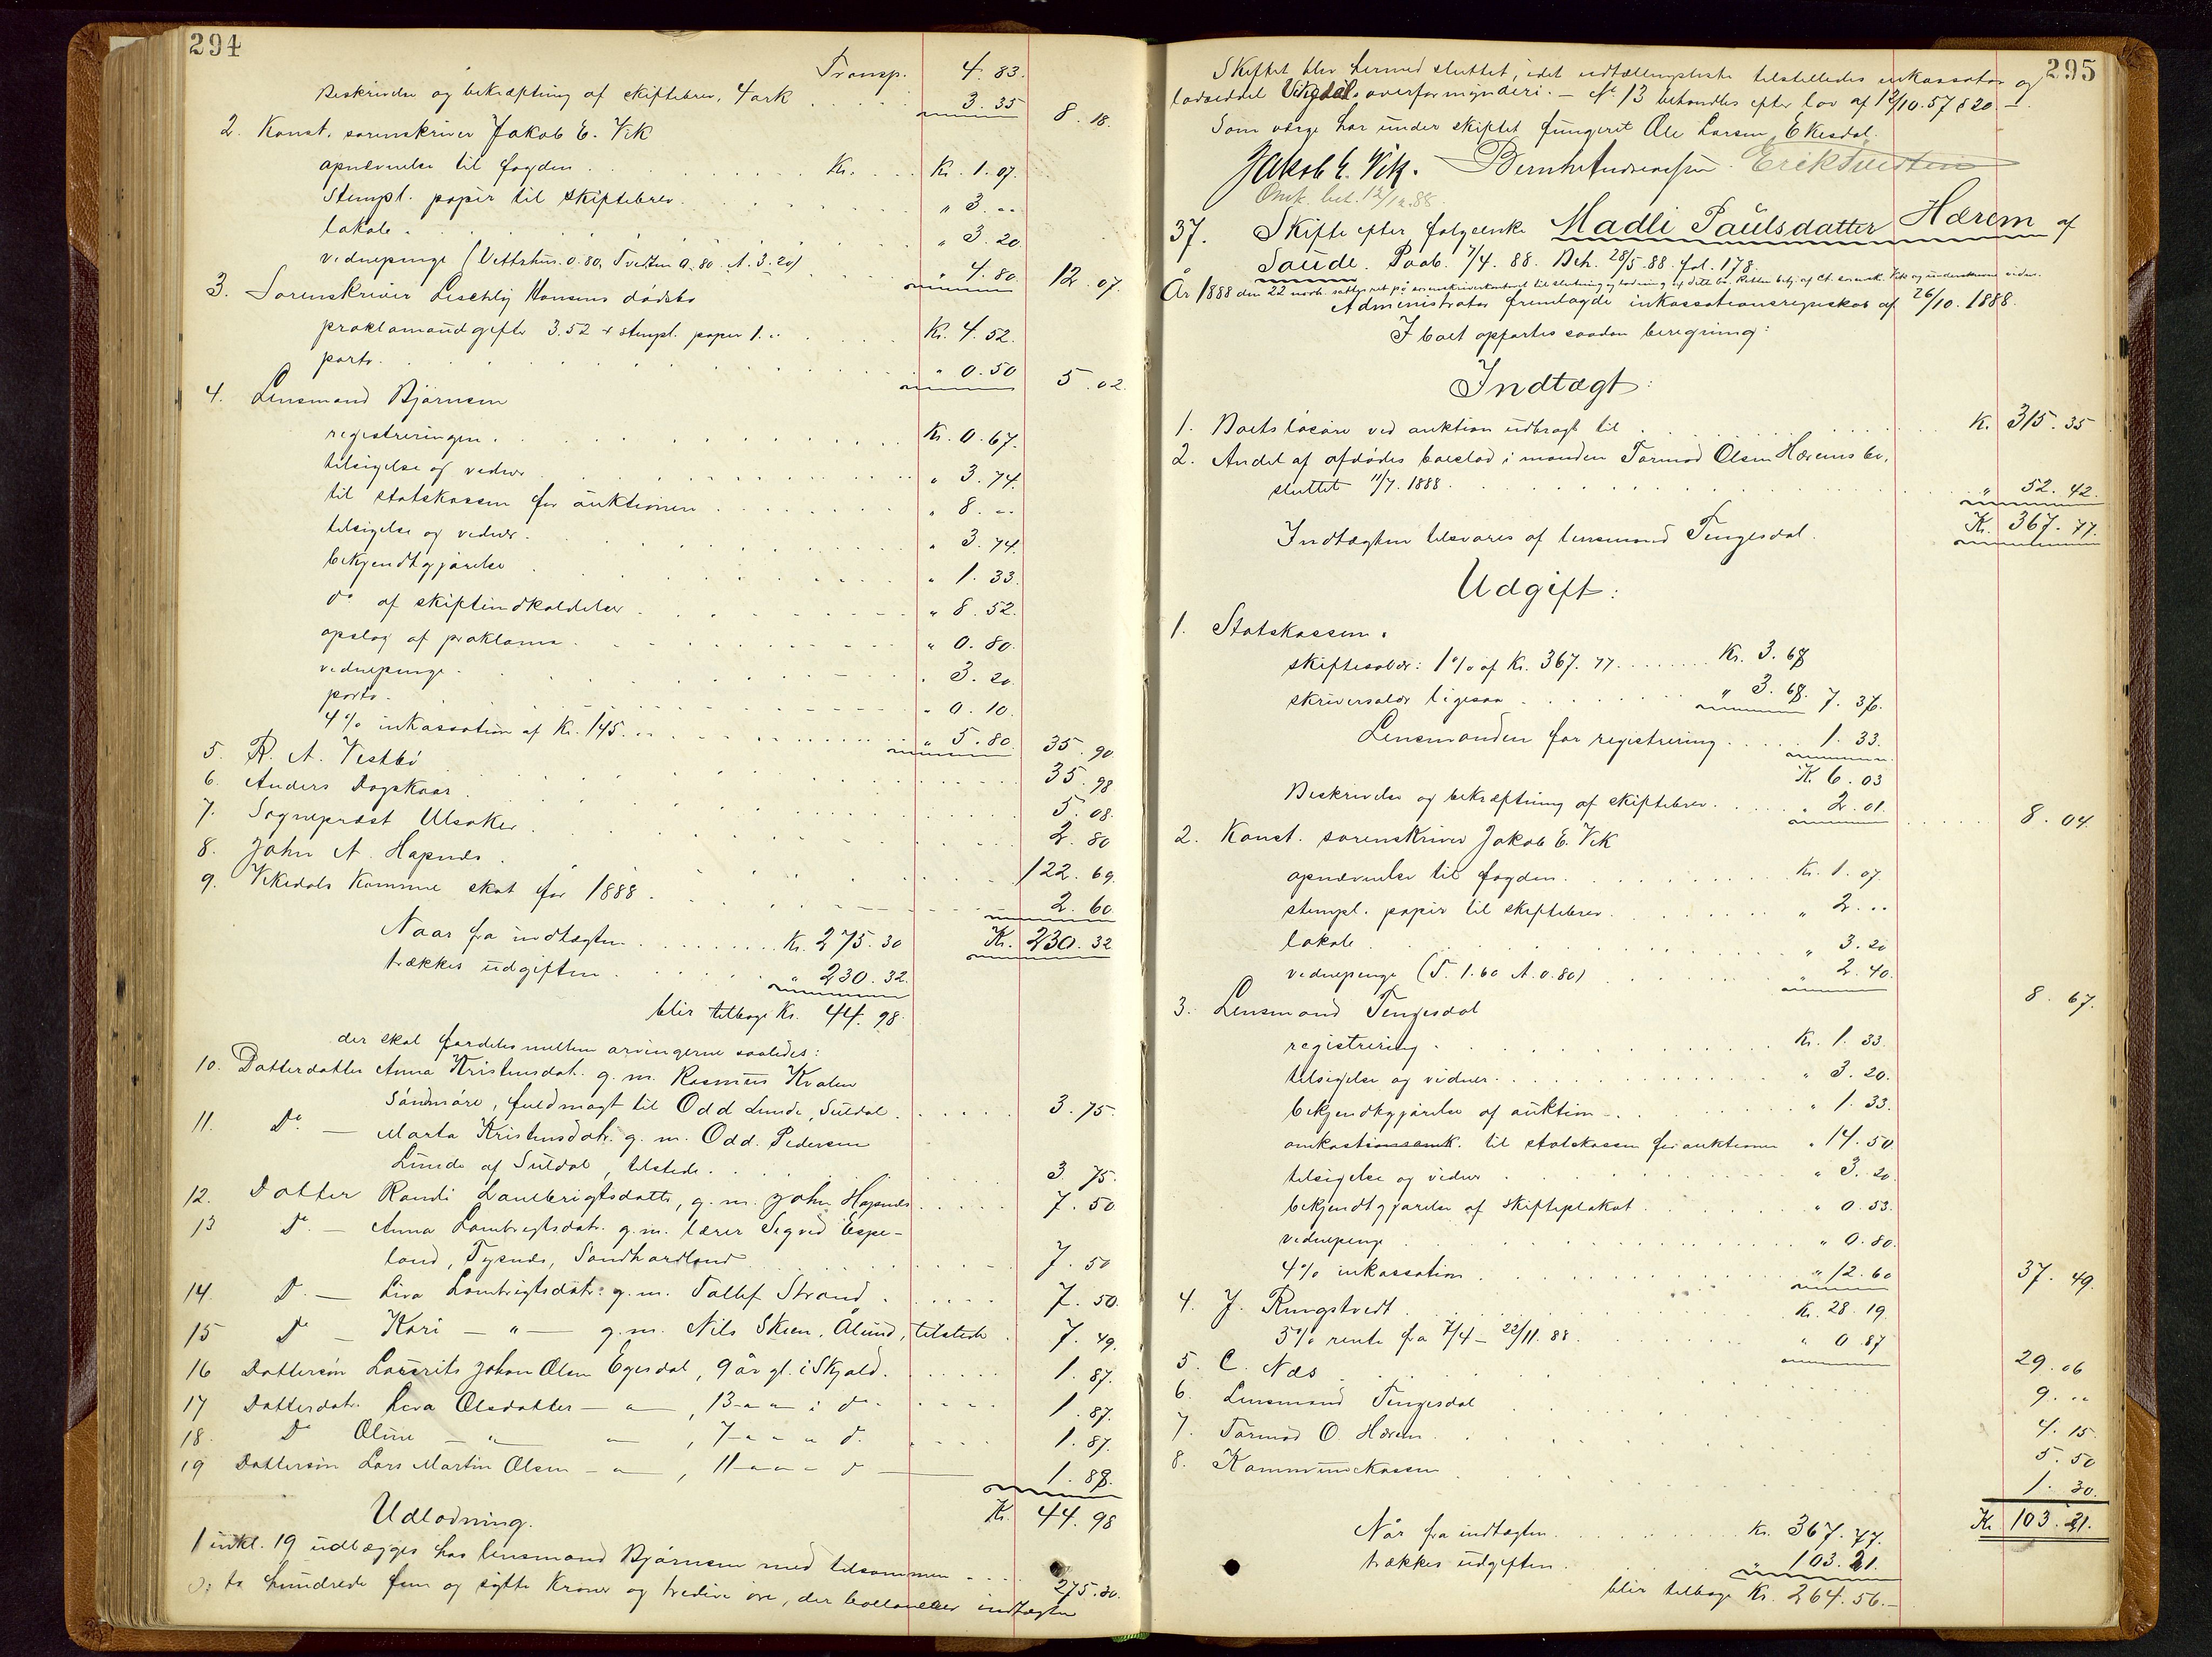 294
Transp. 4.83.
Beskrivelse og bekræftning af skiftebrev, 4 ark . . . 3.35 8.18.
2. Konst. sorenskriver Jakob E. Vik
opnævnelse til fogden . . . Kr. . . Kr. 1.07.
Stempl. papir til skiftebrev . . . " 3. --
lokale . . . " 3.20
vidnepenge (Vettrhus. 0.80, Tveiten 0.80 A. 3.20) . . . " 4.80. 12.07.
3. Sorenskriver Leschly Hansens dødsbo
proklamaudgifter 3.52 + stempl. papir 1. -- . . . Kr. 4.52.
porto . . . " 0.50 5.02.
4. Lensmand Bjørnsen
registreringen . . . Kr. 0.67.
tilsigelse og vidner . . . " 3.74.
til statskassen for auktionen . . . " 8. --
tilsigelse og vidner . . . " 3.74.
bekjendtgjørelse . . . " 1.33.
do af skifteindkaldelser . . . " 8.52.
opslag af proklama . . . " 0.80.
vidnepenge . . . " 3.20.
porto . . . " 0.10.
4% inkassation af Kr. 145. -- . . . " 5.80. 35.90
5. R. A. Vestbø . . . 35.98
6. Anders Dagskaar . . . 5.08.
7. Sogneprest Ulsaker . . . 2.80
8. John A. Hapnes . . . 122.69.
9. Vikedals Kommune skat for 1888 . . . 2.60
Kr. 230.32
Naar fra indtægten . . . Kr. 275.30
trækkes udgiften . . . " 230.32.
blir tilbage Kr. 44.98.
der skal fordeles mellem arvingerne saaledes:
10. Datterdatter Anna Kristensdat. g. m. Rasmus Kvalen
Søndmøre, fuldmagt til Odd Lunde, Suldal . . . 3.75.
11. Do — Marta Kristensdatr. g. m. Odd. Pedersen
Lunde af Suldal, tilstede . . . 3.75.
12. Datter Randi Lambrigtsdatter, g. m. John Hapnes . . . 7.50
13 Do — Anna Lambrigtsdatr. g. m. lærer Sigvid Espe-
land, Tysnes, Søndhordland . . . 7.50
14. D. — Liva Lambrigtsdatr. g. m. Tollef Strand . . . 7.50.
15 Do — Kari — " — g. m. Nils Skeen, Ølund, tilstede . 7.49.
16 Dattersøn Lauerits Johan Olsen Egesdal, 9 år gl. i Skjold . . . 1.87.
17 Datterdatr. Liva Olsdatter — " — , 13 - " - " i do . . . 1.87.
18. Do Oline — " — " — , 7 - " - " d. . . . 1.87.
19 Dattersøn Lars Martin Olsen - " — , 11 - " - " - d — 1.88.
Kr. 44.98
Udlodning.
1 inkl. 19 udlægges hos lensmand Bjørnsen med tilsammen . . . 275.30.
o: to hundrede fem og sytti Kroner og tredive øre, der balancerer indtægten
295
Skiftet blev hermed sluttet, idet udtællingsliste tilstilledes inkassator og
lodseddel Vikedals overformynderi. — No 13 behandles efter lov af 12/10.57 § 20. —
Som værge har under skiftet fungeret Ole Larsen Ekesdal.
Jakob E. Vik. Bernh. Andreassen Erik Tveiten
Omk. bet. 12/12.88.
37. Skifte efter følgeenke Madli Paulsdatter Hærem af
Saude. Paab. 7/4. 88. Beh. 28/5. 88. fol. 178.
År 1888 den 22 novb. sattes ret på sorenskriverkontoret til slutning og lodning af dette bo. Retten betj. af Ct. sorensk. Vik og underskrevne vidner.
Administrator fremlagde inkassationsregnskab af 26/10. 1888.
I boet opførtes saadan beregning:
Indtægt:
1. Boets løsøre ved auktion udbragt til . . . K. 315.35
2. Andel af afdødes boeslod i manden Tormod Olsen Hærems bo,
sluttet 11/7. 1888 . . . " 52.42.
Indtægten tilsvares af lensmand Tengesdal. Kr. 367.77.
Udgift:
1. Statskassen.
skiftesalær: 1% af Kr. 367.77 . . . Kr. 3.68
skriversalær ligesaa . . . " 3.68. 7.36.
Lensmanden for registrering . . . 1.33.
K. 6.03
Beskrivelse og bekræftning af skiftebrev . . . " 2.01. 8.04.
2. Konst. sorenskriver Jakob E. Vik
opnævnelse til fogden . . . Kr. 1.07.
stempl. papir til skiftebrev . . . " 2. --
lokale . . . " 3.20
vidnepenge (T. 1.60 A. 0.80) . . . " 2.40. 8.67.
3. Lensmand Tengesdal
registrering . . . Kr. 1.33.
tilsigelse og vidner . . . " 3.20.
bekjendtgjørelse af auktion . . . " 1.33.
omkost. til statskassen for auktionen " 14.50
tilsigelse og vidner . . . " 3.20.
bekjendtgjørelse af skifteplakat . . . " 0.53.
vidnepenge . . . " 0.80.
4% inkassation . . . " 12.60 37.49.
4. J. Rungstvedt . . . Kr. 28.19.
5% rente fra 7/4 — 22/11. 88 . . . " 0.87 29.06
5. C. Næs . . . 9. --
6. Lensmand Tengesdal . . . 4.15.
7. Tormod O. Hærem . . . 5.50
8. Kommunekassen . . . 1.30.
Kr. 103.21.
Når fra indtægten . . . Kr. 367.77.
trækkes udgiften . . . " 103.21.
blir tilbage Kr. 264.56. —